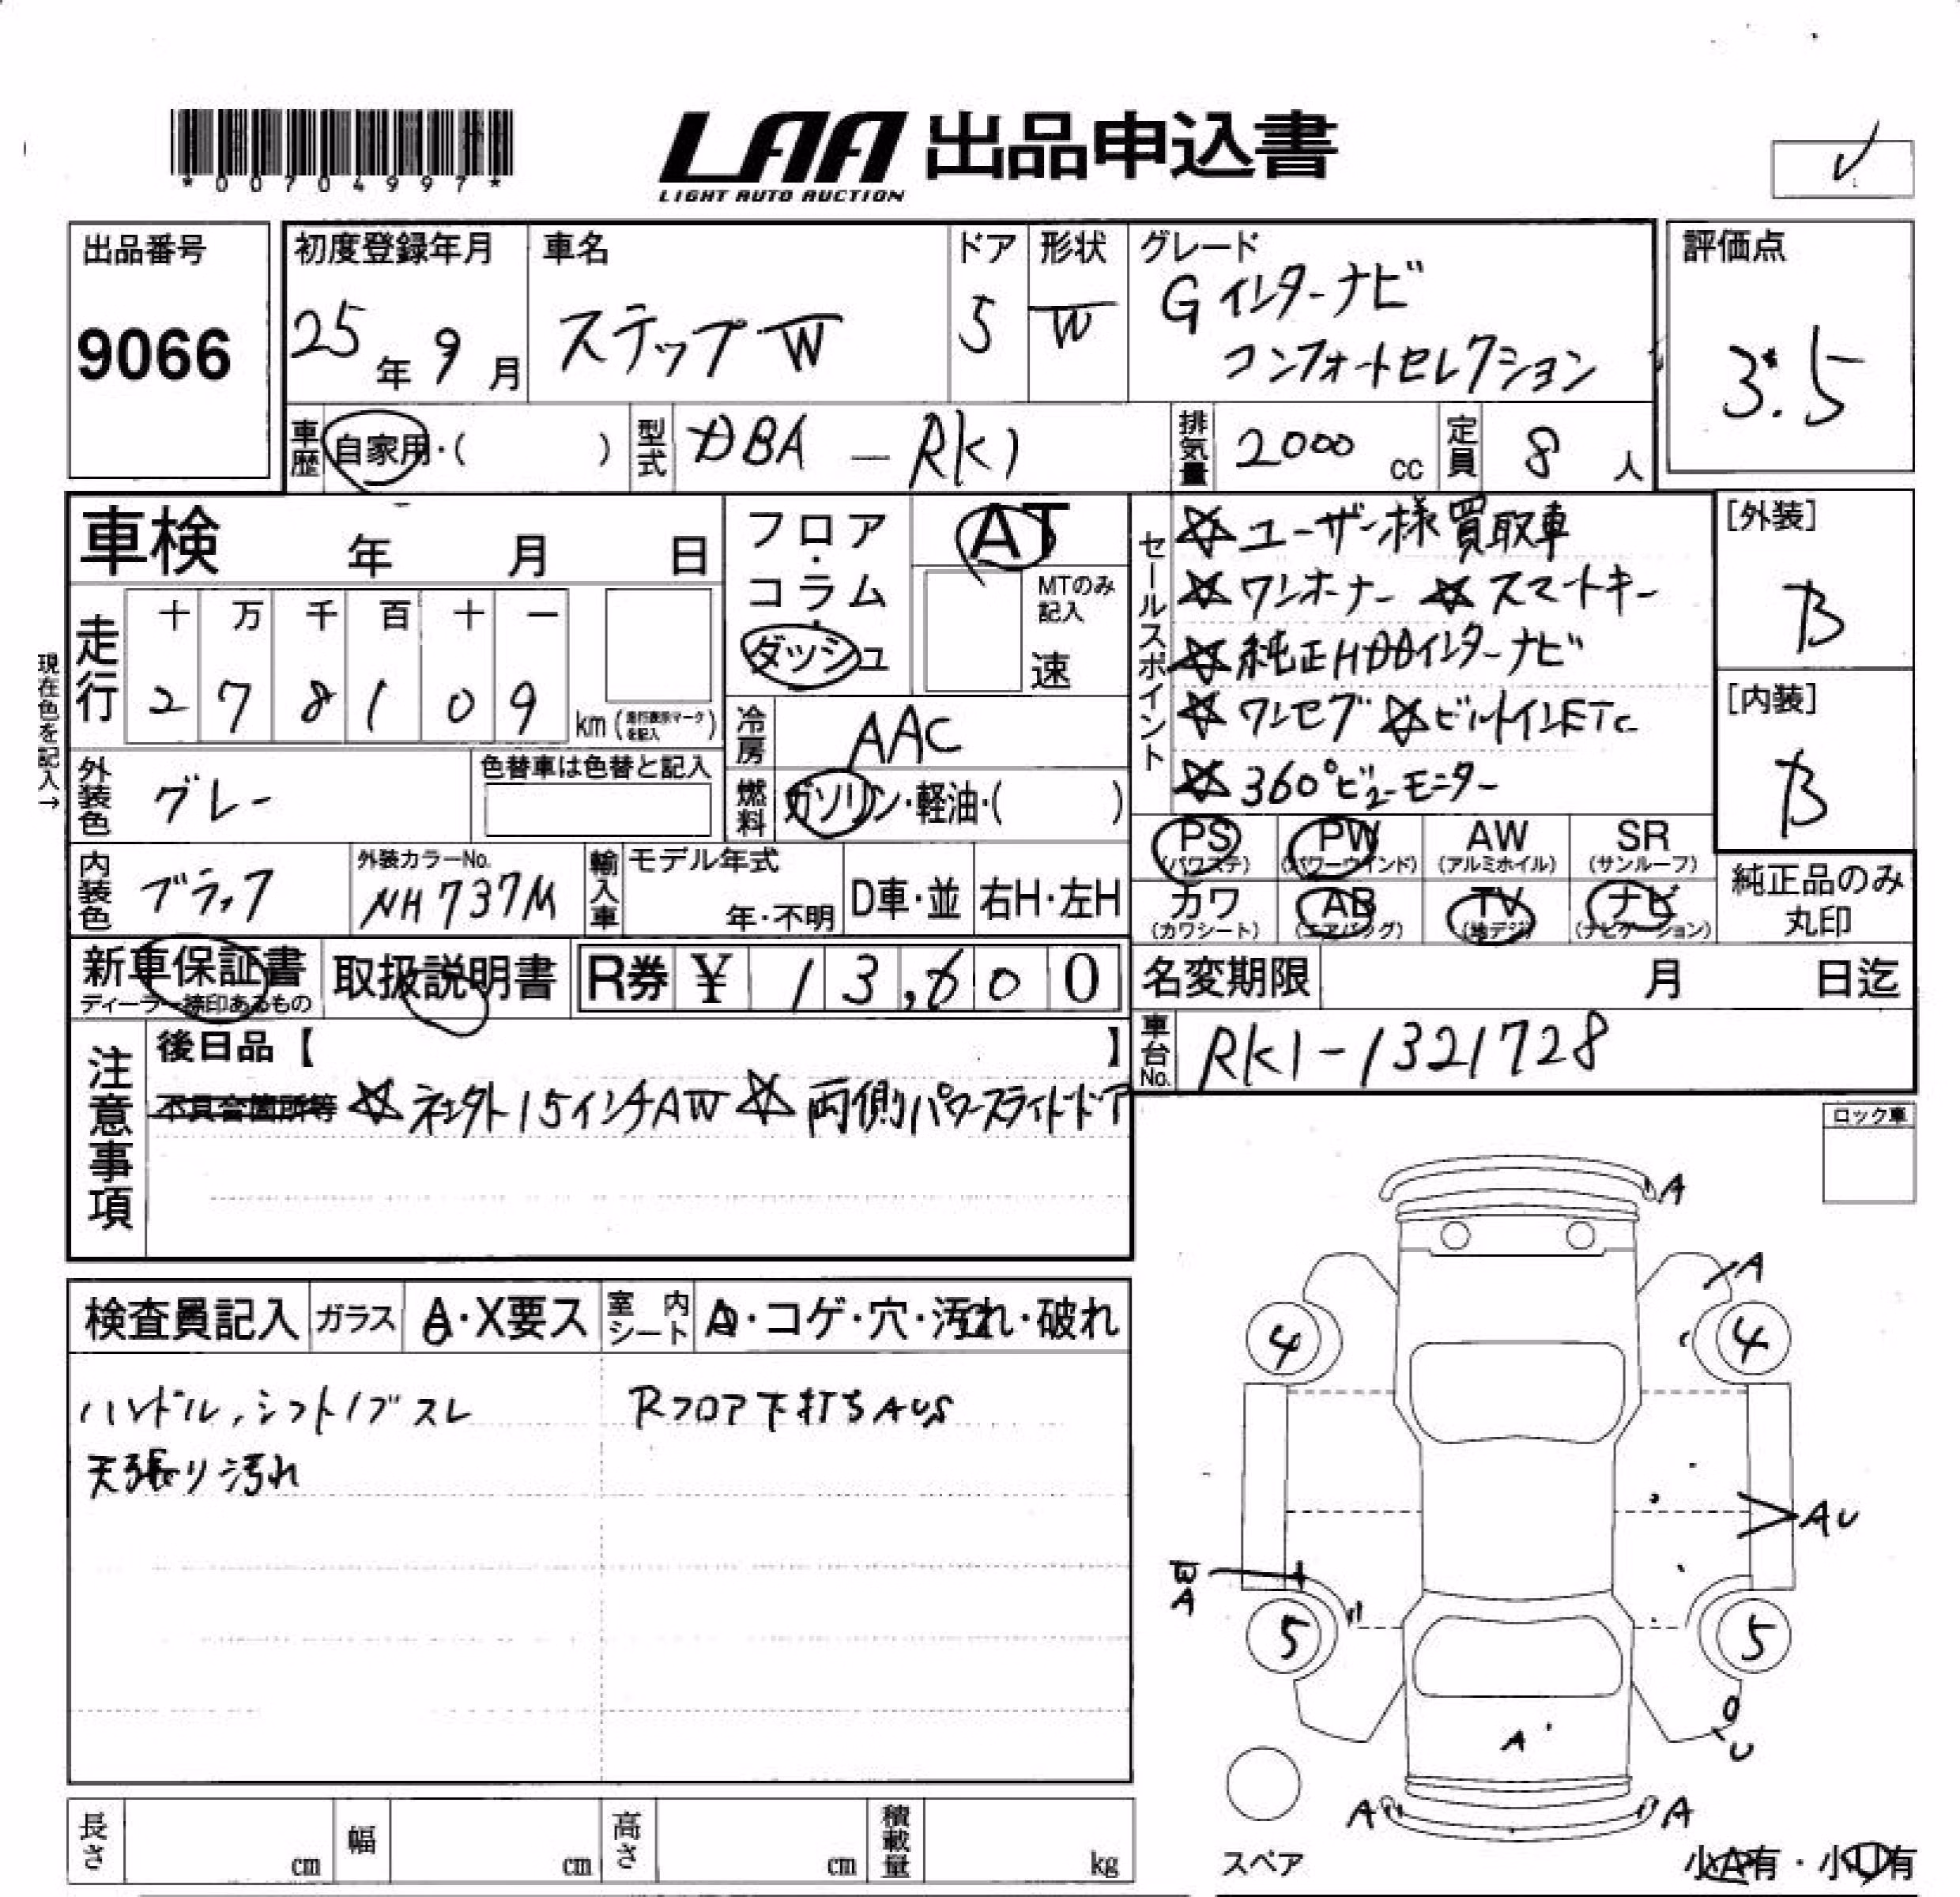 *0070499 7*
LAA 出品申込書
LIGHT AUTO AUCTION
出品番号
9066
初度登録年月
25年9月
車名
ステップW
ドア
5
形状
W
グレード
Gインターナビ
コンフォートセレクション
評価点
3.5
車歴
自家用・( )
型式
DBA-RK1
排気量
2000cc
定員
8人
車検 年 月 日
フロア・コラム・ダッシュ
AT
MTのみ記入
速
セールスポイント
☆ユーザー様買取車
☆ワンオーナー ☆スマートキー
☆純正HDDインターナビ
☆ワンセグ ☆ビルトインETC
☆360°ビューモニター
[外装]
B
[内装]
B
走行
十 万 千 百 十 一
2 7 8 1 0 9
km (走行表示マークを記入)
現在色を記入→
冷房
AAC
外装色
グレー
色替車は色替と記入
燃料
ガソリン・軽油・( )
PS (パワステ)
PW (パワーウインド)
AW (アルミホイル)
SR (サンルーフ)
カワ (カワシート)
AB (エアバッグ)
TV (地デジ)
ナビ (ナビゲーション)
純正品のみ
丸印
内装色
ブラック
外装カラーNo.
NH737M
輸入車
モデル年式
年・不明
D車・並
右H・左H
新車保証書
ディーラー捺印あるもの
取扱説明書
R券 ¥ 13,600
名変期限 月 日迄
車台No.
RK1-1321728
注意事項
後日品【 】
不具合箇所等 ☆社外15インチAW ☆両側パワースライドドア
ロック車
検査員記入
ガラス
A・X要ス
室内シート
・コゲ・穴・汚れ・破れ
ハンドル,シフトノブスレ
天張り汚れ
Rフロア下打ち
A
A
4
4
AU
W
A
5
5
U
A
A
A
スペア
小A有・小U有
長さ cm
幅 cm
高さ cm
積載量 kg